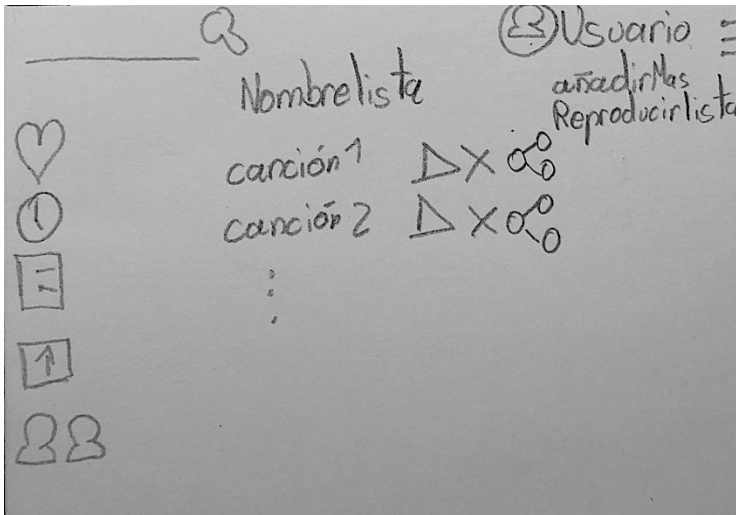 Usuario
Nombrelista
añadirMas
Reproducirlista
canción 1
canción 2
1